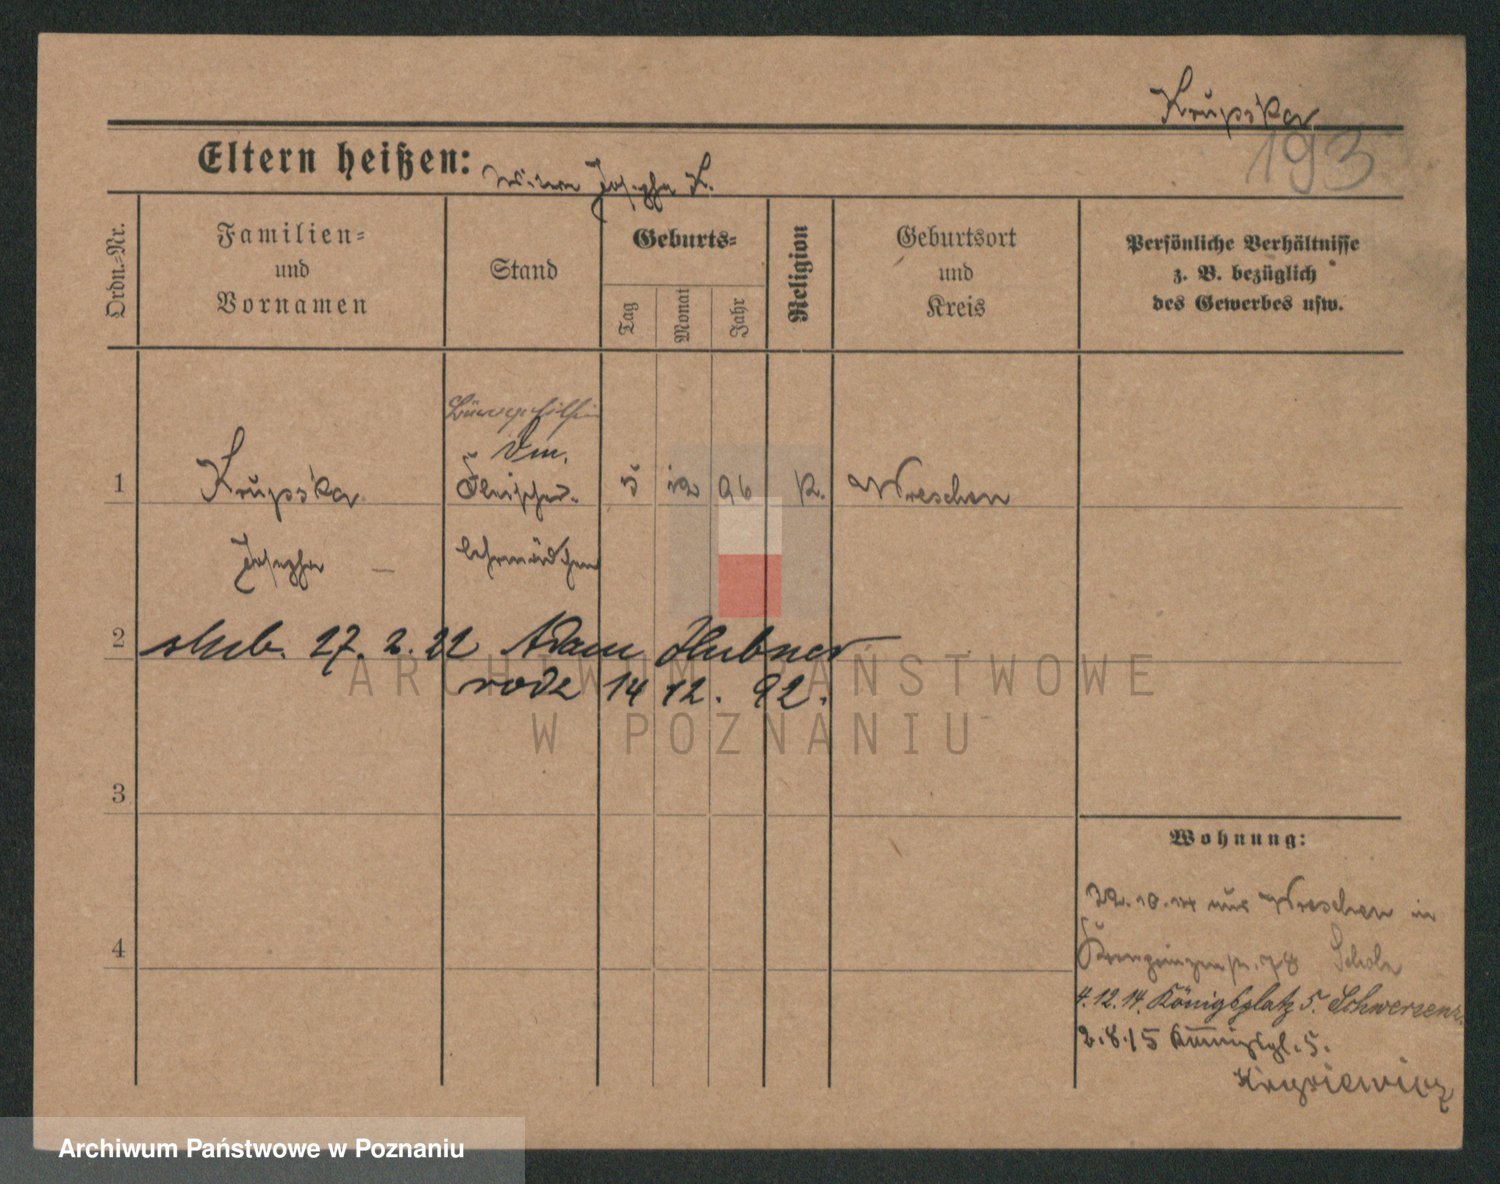 Krupska
193
Eltern heißen: Witwe Josepha K.
Ordn.-Nr.
Familien-
und
Vornamen
Stand
Geburts-
Tag
Monat
Jahr
Religion
Geburtsort
und
Kreis
Persönliche Verhältnisse
z. B. bezüglich
des Gewerbes usw.
1 Krupska Fleischer- 5 12 96 K. Wreschen
Josepha — lehrmädchen
2 slub. 27. 2. 22 Adam Hubner
rodz 14 12. 92.
ARCHIWUM PAŃSTWOWE
W POZNANIU
3
Wohnung:
22.10.14 aus Wreschen in
4
4.12.14. Königsplatz 5. Schwersenz
2.8.15 Königspl. 5.
Archiwum Państwowe w Poznaniu